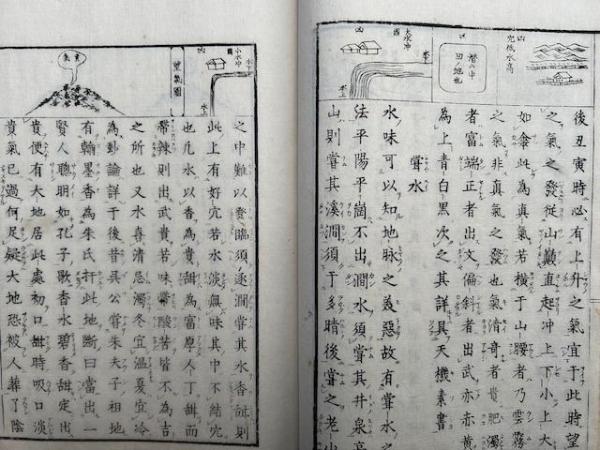 後丑寅時必有上升之氣宜于此時望
之氣之發從山巔直起冲上下小上大
如傘此為真氣若橫于山腰者乃雲霧
之氣非真氣之發也氣清奇者貴肥濁
者富端正者出文偏斜者出武赤黃
為上青白黑次之其詳具天機素書
嘗水
水味可以知地脉之美惡故有嘗水之
法平陽平崗不出澗水須嘗其井泉高
山則嘗其溪澗須于多晴後嘗之老山
望氣圖
之中難以登臨須逐澗嘗其水香甜則
此上有好穴若水淡無味其中不結穴
也凡水以香為貴甜為富厚人丁甜而
帶辣則出武貴若味帶酸苦皆不為吉
之所也又水喜清忌濁冬宜溫夏宜冷
為卦論詳于後昔吳公嘗朱夫子祖地
有翰墨香為朱氏扦此地斷曰當出一
賢人聰明如孔子歌香水碧香甜定出
貴便有大地居此處初口甜時吸口淡
貴氣已過何足疑大地恐被人葬了陰